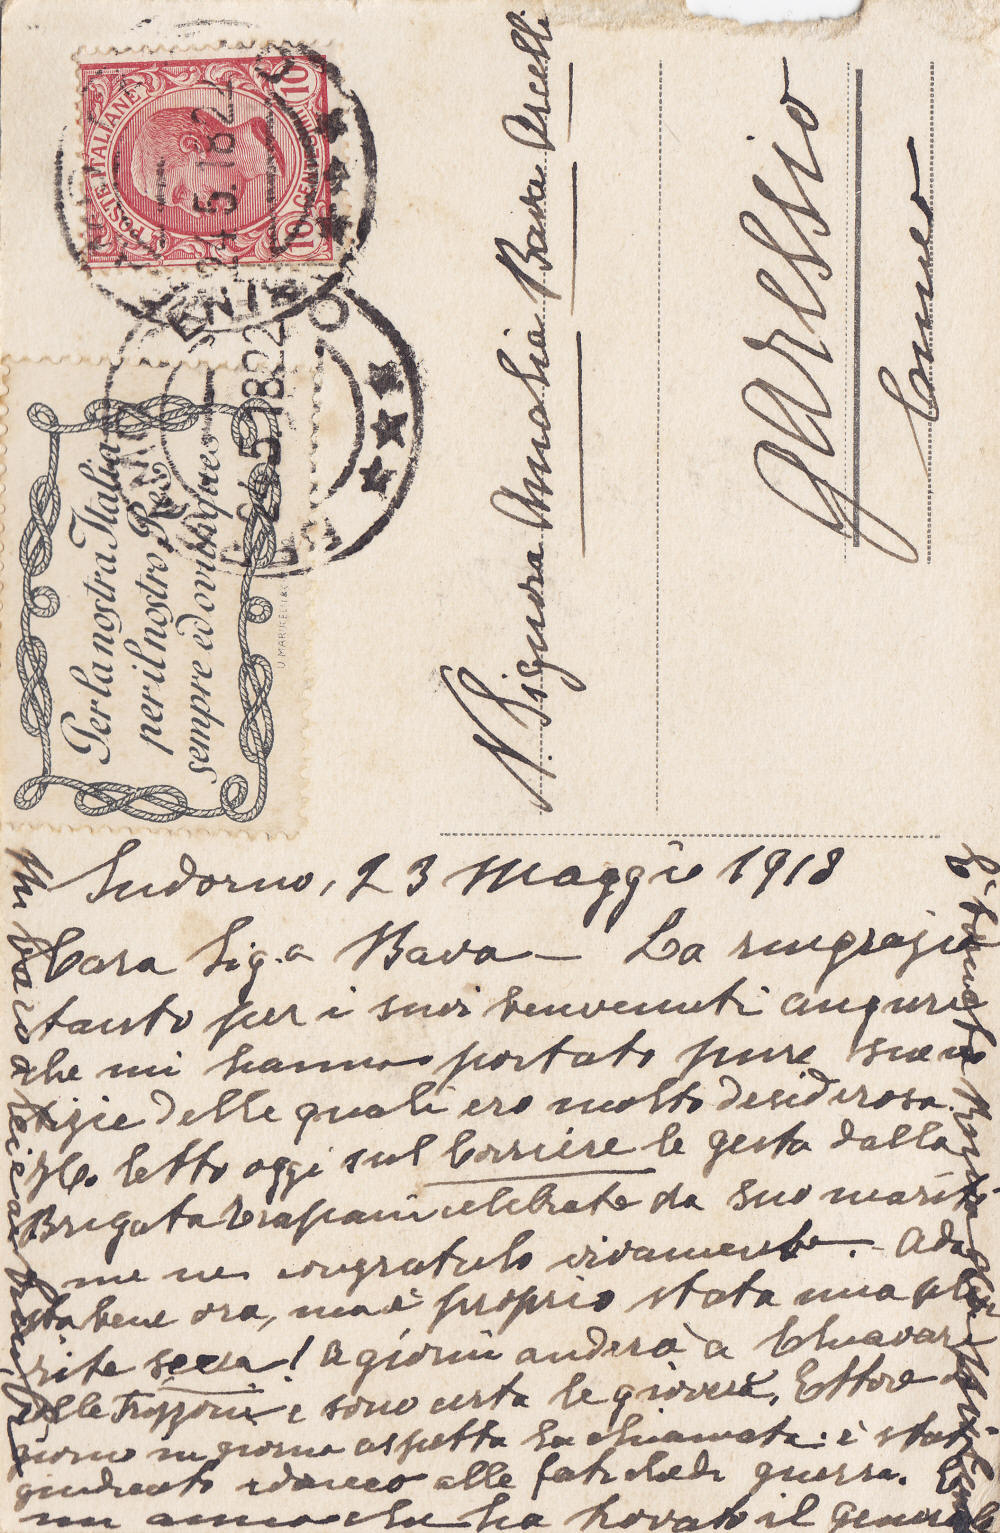 POSTE ITALIANE
10 CENTESIMI 10
24.5.18 22
24.5.18 22
Per la nostra Italia
per il nostro Re
sempre ed ovunque
U. MARICELLI & C
N. Signora Amalia Bava Arcelli
Garessio
Cuneo
Sudorno, 23 Maggio 1918
Cara Sig.a Bava – La ringrazio
tanto per i suoi benvenuti auguri
che mi hanno portato pure sue no
tizie delle quali ero molto desiderosa.
Ho letto oggi sul Corriere le gesta dalla
Brigata Trapani celebrate da suo marito
me ne congratulo vivamente. – Ada
sta bene ora, ma è proprio stata una pleu
rite secca! A giorni andrà a Chiavari
colle Frizzoni e sono certa le gioverà, Ettore di
giorno in giorno aspetta la chiamata: è stato
giudicato idoneo alle fatiche di guerra.
un anno che ha trovato il generale